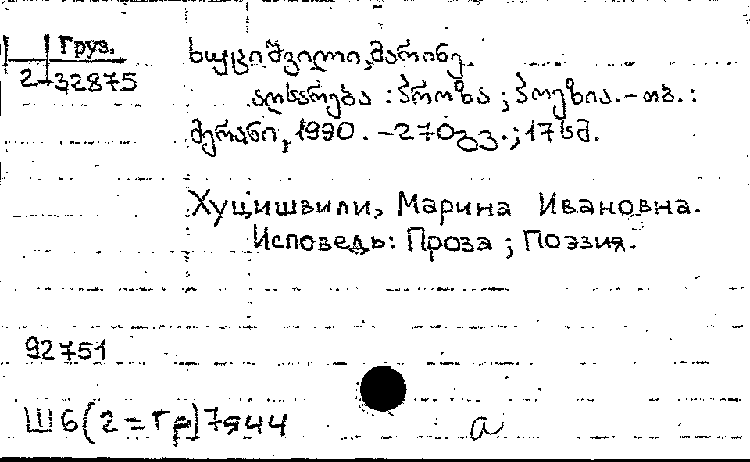 Груз.
2-32875
ხუციშვილი, მარინე.
აღსარება : პროზა ; პოეზია. - თბ. :
მერანი, 1990. - 270გვ. ; 17სმ.
Хуцишвили, Марина Ивановна.
Исповедь: Проза ; Поэзия.
92751
Ш6(2=Гр)7я44
а